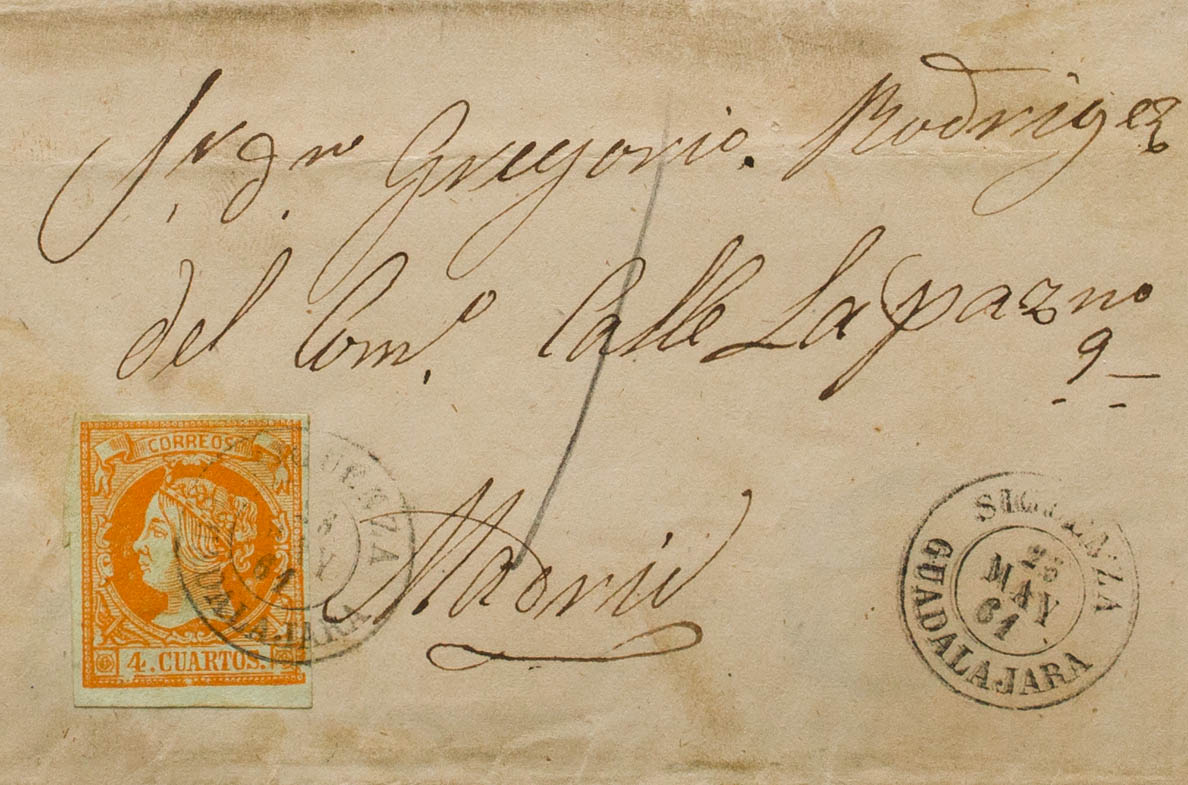 Sr. dn. Gregorio. Rodrigez
del Como. Calle La paz no
9
Madrid
CORREOS
4. CUARTOS.
SIGUENZA
MAY
61
GUADALAJARA
SIGUENZA
28
MAY
61
GUADALAJARA